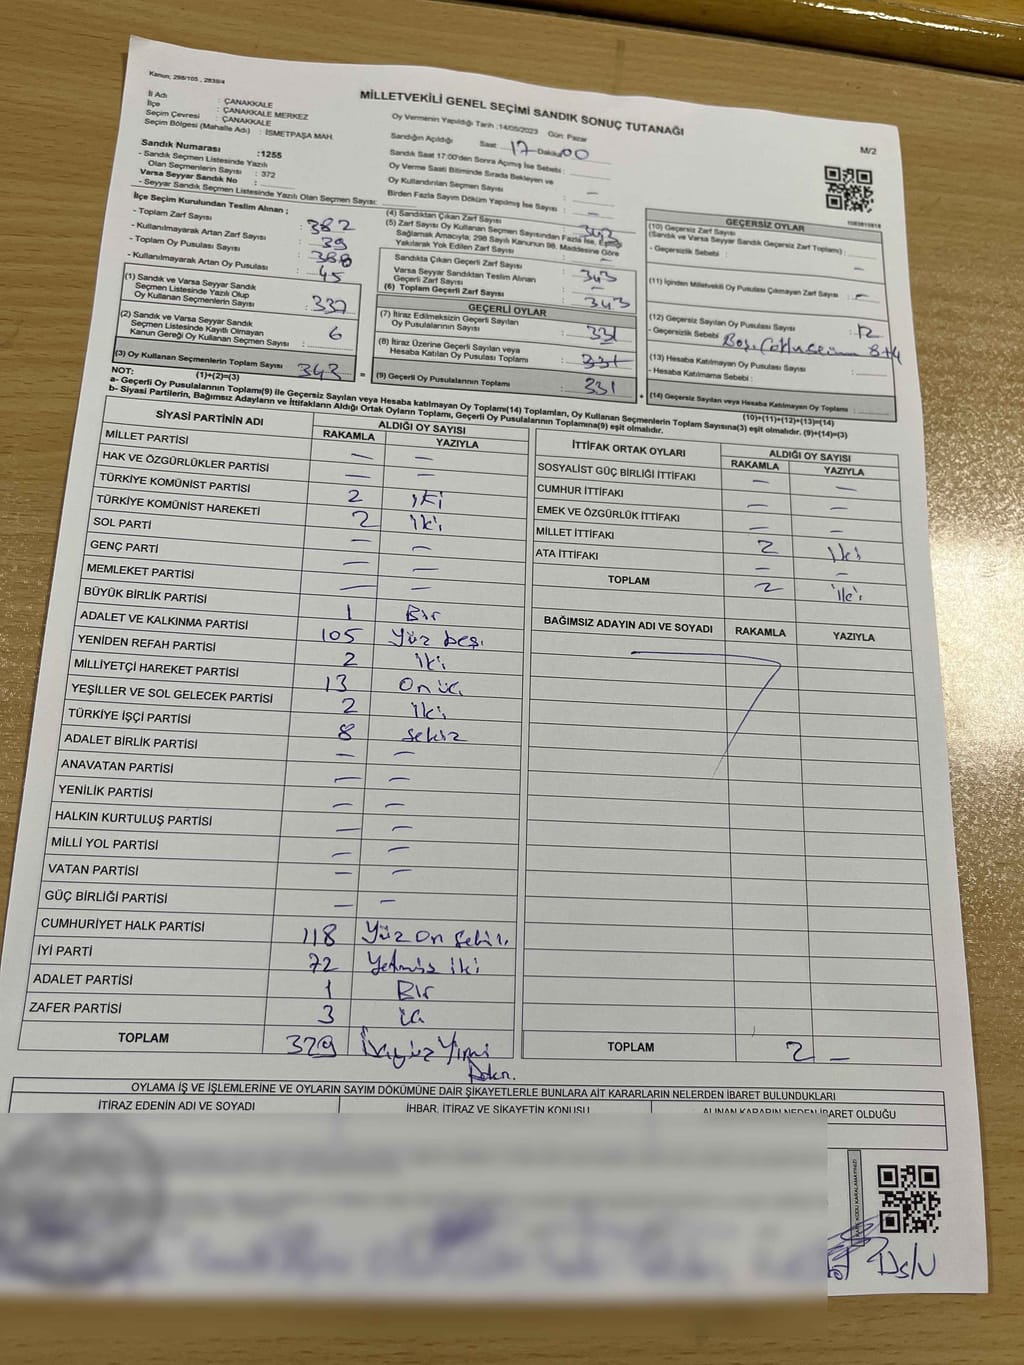 Kanun; 298/105 , 2839/4
MİLLETVEKİLİ GENEL SEÇİMİ SANDIK SONUÇ TUTANAĞI
M/2
İl Adı : ÇANAKKALE
İlçe : ÇANAKKALE MERKEZ
Seçim Çevresi : ÇANAKKALE
Seçim Bölgesi (Mahalle Adı) : İSMETPAŞA MAH.
Sandık Numarası :1255
- Sandık Seçmen Listesinde Yazılı
Olan Seçmenlerin Sayısı : 372
Varsa Seyyar Sandık No :
- Seyyar Sandık Seçmen Listesinde Yazılı Olan Seçmen Sayısı:
Oy Vermenin Yapıldığı Tarih :14/05/2023 Gün: Pazar
Sandığın Açıldığı Saat 17 Dakika 00
Sandık Saat 17:00'den Sonra Açılmış İse Sebebi :
Oy Verme Saati Bitiminde Sırada Bekleyen ve
Oy Kullandırılan Seçmen Sayısı : –
Birden Fazla Sayım Döküm Yapılmış İse Sayısı : –
İlçe Seçim Kurulundan Teslim Alınan ;
- Toplam Zarf Sayısı : 382
- Kullanılmayarak Artan Zarf Sayısı : 39
- Toplam Oy Pusulası Sayısı : 388
- Kullanılmayarak Artan Oy Pusulası : 45
(1) Sandık ve Varsa Seyyar Sandık
Seçmen Listesinde Yazılı Olup
Oy Kullanan Seçmenlerin Sayısı : 337
(2) Sandık ve Varsa Seyyar Sandık
Seçmen Listesinde Kayıtlı Olmayan
Kanun Gereği Oy Kullanan Seçmen Sayısı : 6
(3) Oy Kullanan Seçmenlerin Toplam Sayısı : 343
(1)+(2)=(3)
(4) Sandıktan Çıkan Zarf Sayısı : 343
(5) Zarf Sayısı Oy Kullanan Seçmen Sayısından Fazla İse, Eşitliği
Sağlamak Amacıyla; 298 Sayılı Kanunun 98. Maddesine Göre
Yakılarak Yok Edilen Zarf Sayısı :
Sandıkta Çıkan Geçerli Zarf Sayısı : 343
Varsa Seyyar Sandıktan Teslim Alınan
Geçerli Zarf Sayısı : –
(6) Toplam Geçerli Zarf Sayısı : 343
GEÇERLİ OYLAR
(7) İtiraz Edilmeksizin Geçerli Sayılan
Oy Pusulalarının Sayısı : 331
(8) İtiraz Üzerine Geçerli Sayılan veya
Hesaba Katılan Oy Pusulası Toplamı : 331
(9) Geçerli Oy Pusulalarının Toplamı : 331
GEÇERSİZ OYLAR
(10) Geçersiz Zarf Sayısı
(Sandık ve Varsa Seyyar Sandık Geçersiz Zarf Toplamı) :
- Geçersizlik Sebebi : –
(11) İçinden Milletvekili Oy Pusulası Çıkmayan Zarf Sayısı : –
(12) Geçersiz Sayılan Oy Pusulası Sayısı : 12
- Geçersizlik Sebebi : 8+4
(13) Hesaba Katılmayan Oy Pusulası Sayısı :
- Hesaba Katılmama Sebebi :
(14) Geçersiz Sayılan veya Hesaba Katılmayan Oy Toplamı :
(10)+(11)+(12)+(13)=(14)
NOT:
a- Geçerli Oy Pusulalarının Toplamı(9) ile Geçersiz Sayılan veya Hesaba katılmayan Oy Toplamı(14) Toplamları, Oy Kullanan Seçmenlerin Toplam Sayısına(3) eşit olmalıdır. (9)+(14)=(3)
b- Siyasi Partilerin, Bağımsız Adayların ve İttifakların Aldığı Ortak Oyların Toplamı, Geçerli Oy Pusulalarının Toplamına(9) eşit olmalıdır.
SİYASİ PARTİNİN ADI ALDIĞI OY SAYISI
RAKAMLA YAZIYLA
MİLLET PARTİSİ – –
HAK VE ÖZGÜRLÜKLER PARTİSİ – –
TÜRKİYE KOMÜNİST PARTİSİ 2 iki
TÜRKİYE KOMÜNİST HAREKETİ 2 iki
SOL PARTİ – –
GENÇ PARTİ – –
MEMLEKET PARTİSİ – –
BÜYÜK BİRLİK PARTİSİ 1 Bir
ADALET VE KALKINMA PARTİSİ 105 Yüz beş
YENİDEN REFAH PARTİSİ 2 iki
MİLLİYETÇİ HAREKET PARTİSİ 13 On üç
YEŞİLLER VE SOL GELECEK PARTİSİ 2 iki
TÜRKİYE İŞÇİ PARTİSİ 8 sekiz
ADALET BİRLİK PARTİSİ – –
ANAVATAN PARTİSİ – –
YENİLİK PARTİSİ – –
HALKIN KURTULUŞ PARTİSİ – –
MİLLİ YOL PARTİSİ – –
VATAN PARTİSİ – –
GÜÇ BİRLİĞİ PARTİSİ – –
CUMHURİYET HALK PARTİSİ 118 Yüz on sekiz
İYİ PARTİ 72 Yetmiş iki
ADALET PARTİSİ 1 Bir
ZAFER PARTİSİ 3 üç
TOPLAM 329 Üçyüz Yirmi Dokuz
İTTİFAK ORTAK OYLARI ALDIĞI OY SAYISI
RAKAMLA YAZIYLA
SOSYALİST GÜÇ BİRLİĞİ İTTİFAKI – –
CUMHUR İTTİFAKI – –
EMEK VE ÖZGÜRLÜK İTTİFAKI – –
MİLLET İTTİFAKI 2 iki
ATA İTTİFAKI – –
TOPLAM 2 iki
BAĞIMSIZ ADAYIN ADI VE SOYADI RAKAMLA YAZIYLA
TOPLAM 2 –
OYLAMA İŞ VE İŞLEMLERİNE VE OYLARIN SAYIM DÖKÜMÜNE DAİR ŞİKAYETLERLE BUNLARA AİT KARARLARIN NELERDEN İBARET BULUNDUKLARI
İTİRAZ EDENİN ADI VE SOYADI İHBAR, İTİRAZ VE ŞİKAYETİN KONUSU ALINAN KARARIN NEDEN İBARET OLDUĞU